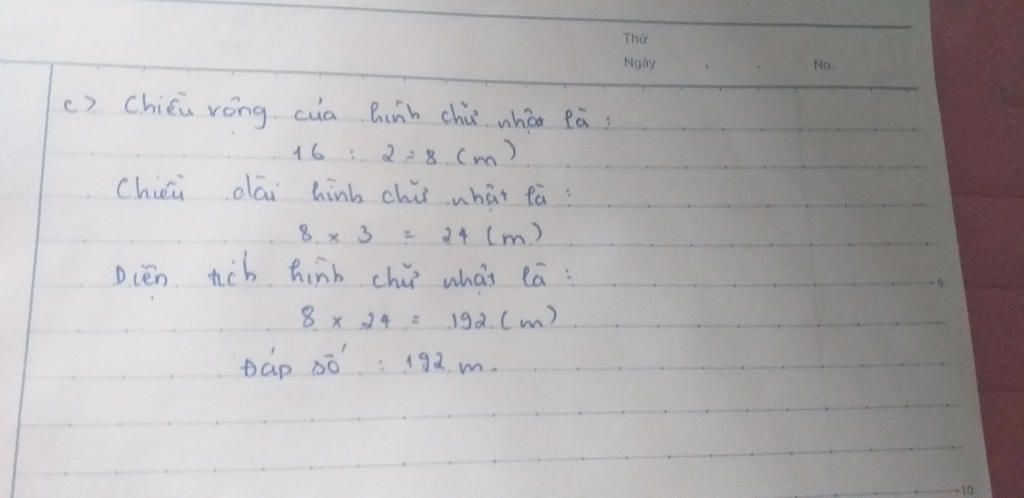 Thứ
Ngày No.
c> Chiều rộng của hình chữ nhật là :
16 : 2 = 8 (m)
Chiều dài hình chữ nhật là :
8 x 3 = 24 (m)
Diện tích hình chữ nhật là :
5
8 x 24 = 192 (m)
Đáp số : 192 m.
10